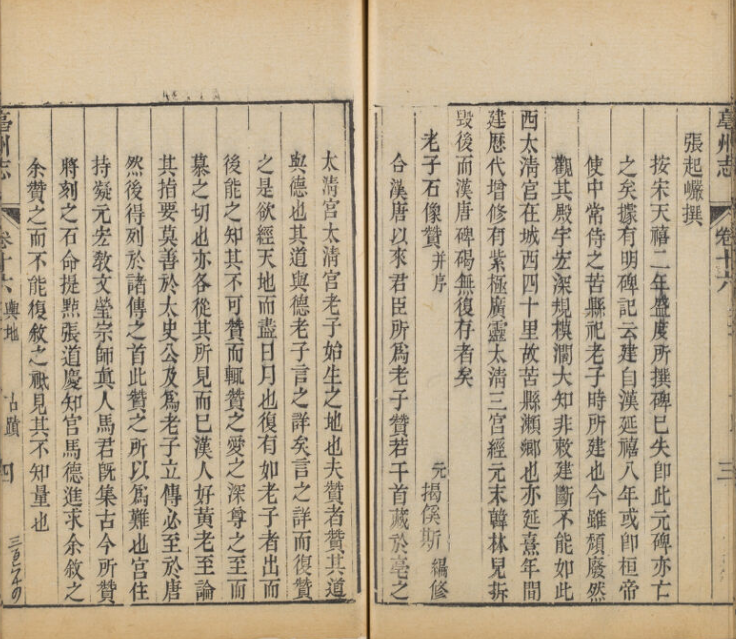 亳州志 卷十六 三
張起巖撰
按宋天禧二年盛度所撰碑已失卽此元碑亦亡
之矣據有明碑記云建自漢延禧八年或卽桓帝
使中常侍之苦縣祀老子時所建也今雖頹廢然
觀其殿宇宏深規模濶大知非敕建斷不能如此
西太淸宮在城西四十里故苦縣瀨鄉也亦延熹年間
建歷代增修有紫極廣靈太淸三宮經元末韓林兒拆
毀後而漢唐碑碣無復存者矣
老子石像贊并序 元 揭傒斯 編修
合漢唐以來君臣所爲老子贊若干首藏於亳之
太淸宮太淸宮老子始生之地也夫贊者贊其道
與德也其道與德老子言之詳矣言之詳而復贊
之是欲經天地而盡日月也復有如老子者出而
後能之知其不可贊而輒贊之愛之深尊之至而
慕之切也亦各從其所見而已漢人好黃老至論
其指要莫善於太史公及爲老子立傳必至於唐
然後得列於諸傳之首此贊之所以爲難也宮住
持凝元宏敎文瑩宗師眞人馬君旣集古今所贊
將刻之石命提點張道慶知官馬德進求余敘之
余贊之而不能復敘之祇見其不知量也
亳州志 卷十六 輿地 古蹟 四